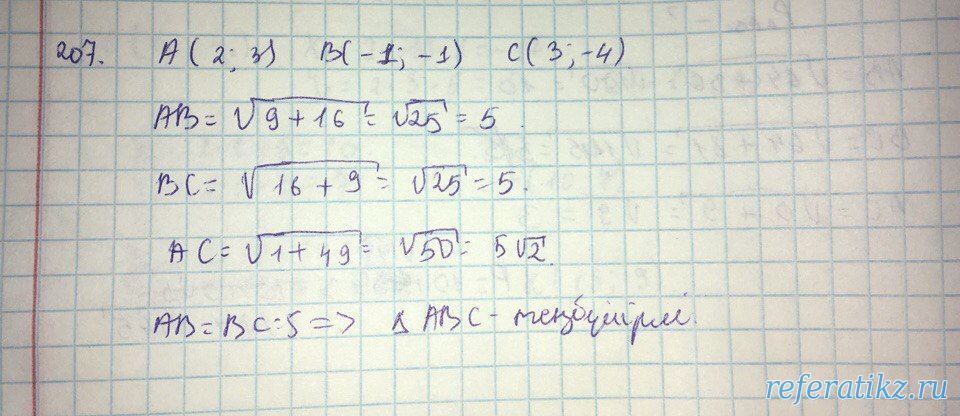 207. A(2; 3) B(-1; -1) C(3; -4)
AB = √9+16 = √25 = 5.
BC = √16+9 = √25 = 5.
AC = √1+49 = √50 = 5√2.
AB = BC = 5 => Δ ABC - теңбүйірлі.
referatikz.ru